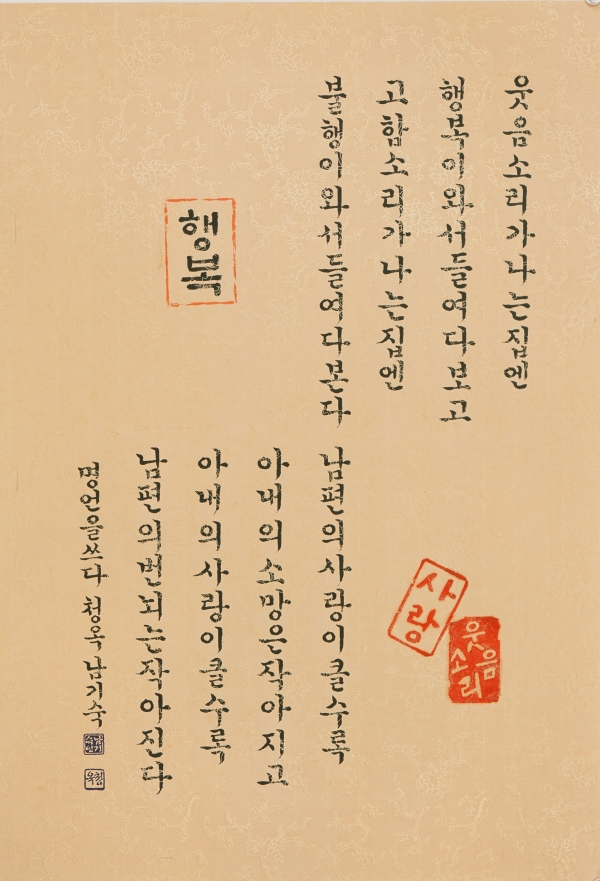 웃음소리가나는집엔
행복이와서들여다보고
고함소리가나는집엔
불행이와서들여다본다
행복
남편의사랑이클수록
아내의소망은작아지고
아내의사랑이클수록
남편의번뇌는작아진다
명언을쓰다 청옥 남기숙
사랑
웃음
소리